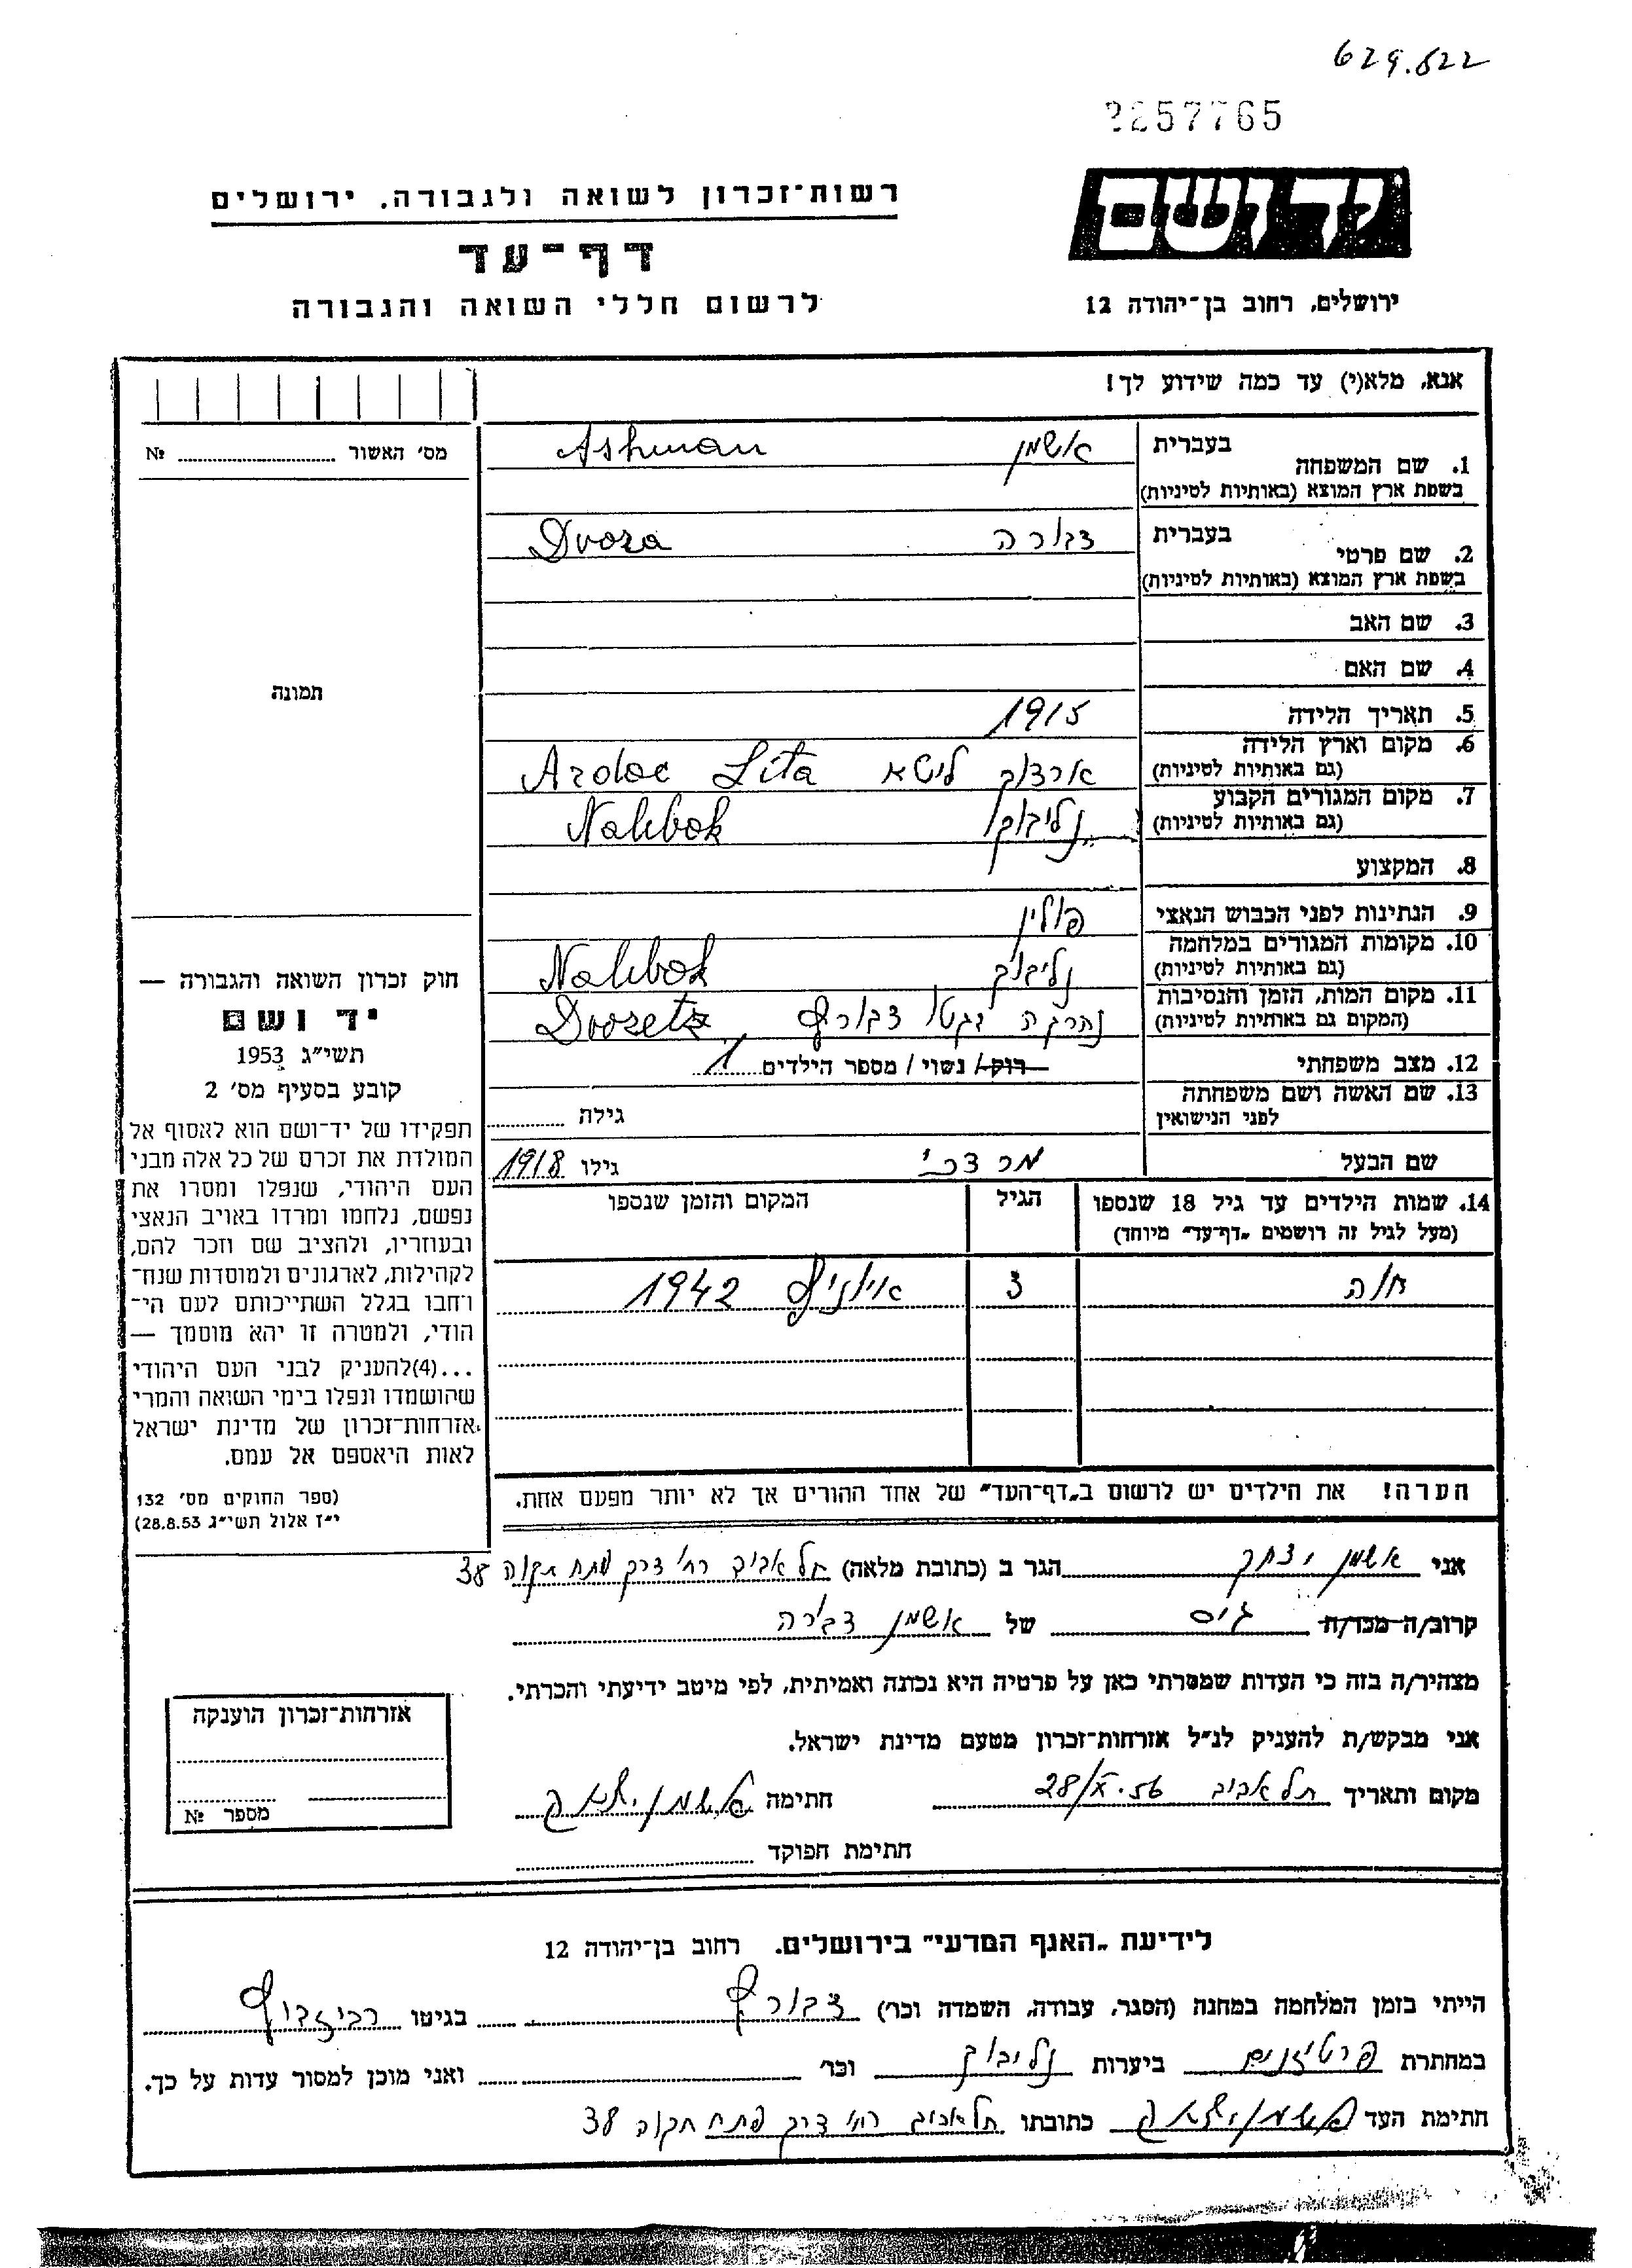 629.622
2257765
יד ושם
ירושלים, רחוב בן־יהודה 12
רשות־זכרון לשואה ולגבורה, ירושלים
דף־עד
לרשום חללי השואה והגבורה
אנא, מלא(י) עד כמה שידוע לך!
מס' האשור № 
1. שם המשפחה בעברית אשמן Ashman
בשפת ארץ המוצא (באותיות לטיניות)
2. שם פרטי בעברית דבורה Dvora
בשפת ארץ המוצא (באותיות לטיניות)
3. שם האב
4. שם האם
תמונה
5. תאריך הלידה 1915
6. מקום וארץ הלידה ליטא Lita
(גם באותיות לטיניות)
7. מקום המגורים הקבוע נליבוקי Nalibok
(גם באותיות לטיניות)
8. המקצוע
9. הנתינות לפני הכבוש הנאצי פולין
10. מקומות המגורים במלחמה נליבוק Nalibok
(גם באותיות לטיניות)
11. מקום המות, הזמן והנסיבות נהרגה בגטו דבורץ Dvoretz
(המקום גם באותיות לטיניות)
12. מצב משפחתי רוק/ נשוי / מספר הילדים 1
13. שם האשה ושם משפחתה
לפני הנישואין
גילה
שם הבעל מרדכי גילו 1918
14. שמות הילדים עד גיל 18 שנספו
(מעל לגיל זה רושמים „דף־עד” מיוחד)
הגיל
המקום והזמן שנספו
חנה 3 1942
הערה! את הילדים יש לרשום ב„דף־העד” של אחד ההורים אך לא יותר מפעם אחת.
חוק זכרון השואה והגבורה —
יד ושם
תשי״ג 1953
קובע בסעיף מס' 2
תפקידו של יד־ושם הוא לאסוף אל
המולדת את זכרם של כל אלה מבני
העם היהודי, שנפלו ומסרו את
נפשם, נלחמו ומרדו באויב הנאצי
ובעוזריו, ולהציב שם וזכר להם,
לקהילות, לארגונים ולמוסדות שנח־
רחבו בגלל השתייכותם לעם הי־
הודי, ולמטרה זו יהא מוסמך —
...(4)להעניק לבני העם היהודי
שהושמדו ונפלו בימי השואה והמרי
אזרחות־זכרון של מדינת ישראל
לאות היאספם אל עמם.
(ספר החוקים מס' 132
י״ז אלול תשי״ג 28.8.53)
אני אשמן יצחק הגר ב (כתובת מלאה) תל אביב רח' דרך פתח תקוה 38
קרוב/ה מכר/ה גיס של אשמן דבורה
מצהיר/ה בזה כי העדות שמסרתי כאן על פרטיה היא נכונה ואמיתית, לפי מיטב ידיעתי והכרתי.
אני מבקש/ת להעניק לנ״ל אזרחות־זכרון מטעם מדינת ישראל.
מקום ותאריך תל אביב 28/X.56 חתימה אשמן יצחק
חתימת הפוקד
אזרחות־זכרון הוענקה
מספר №
לידיעת „האגף המדעי” בירושלים. רחוב בן־יהודה 12
הייתי בזמן המלחמה במחנה (הסגר, עבודה, השמדה וכר) דבורץ בגיטו
במחתרת פרטיזנים ביערות נליבוק וכר' ואני מוכן למסור עדות על כך.
חתימת העד אשמן יצחק כתובתו תל אביב רח' דרך פתח תקוה 38